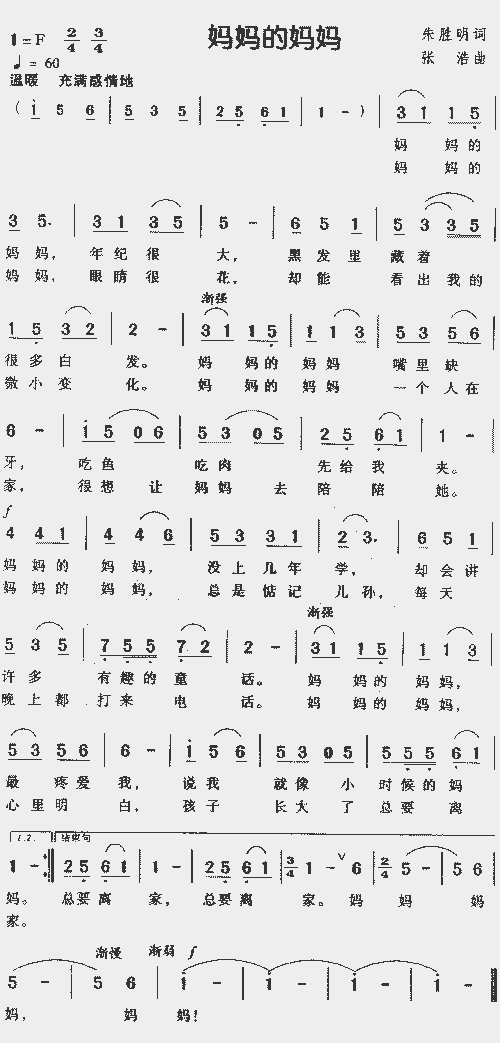 妈妈的妈妈
1=F 2/4 3/4
朱胜明词
♩= 60
张 浩曲
温暖 充满感情地
( i 5 6 | 5 3 5 | 2 5 6 1 | 1 - ) | 3 1 1 5 |
妈 妈的
妈 妈的
3 5. | 3 1 3 5 | 5 - | 6 5 1 | 5 3 3 5 |
妈妈, 年纪很 大, 黑发里 藏着
妈妈, 眼睛很 花, 却能 看出我的
渐强
1 5 3 2 | 2 - | 3 1 1 5 | 1 1 3 | 5 3 5 6 |
很多白 发。 妈 妈的 妈妈 嘴里缺
微小变 化。 妈 妈的 妈妈 一个人在
6 - | i 5 0 6 | 5 3 0 5 | 2 5 6 1 | 1 - |
牙, 吃鱼 吃肉 先给我 夹。
家, 很想 让 妈妈 去 陪 陪 她。
f
4 4 1 | 4 4 6 | 5 3 3 1 | 2 3. | 6 5 1 |
妈妈的 妈妈, 没上几年 学, 却会讲
妈妈的 妈妈, 总是惦记 儿孙, 每天
渐强
5 3 5 | 7 5 5 7 2 | 2 - | 3 1 1 5 | 1 1 3 |
许多 有趣的童 话。 妈 妈的 妈妈,
晚上都 打来 电 话。 妈 妈的 妈妈,
5 3 5 6 | 6 - | i 5 6 | 5 3 0 5 | 5 5 5 6 1 |
最 疼爱 我, 说我 就像 小 时候的妈
心里明 白, 孩子 长大 了 总要 离
1.2. 结束句
1 - :| 2 5 6 1 | 1 - | 2 5 6 1 | 3/4 1 - ∨ 6 | 2/4 5 - | 5 6 |
妈。 总要离 家, 总要离 家。 妈 妈 妈
家。
渐慢 渐弱 f
5 - | 5 6 | i - | i - | i - | i - ‖
妈, 妈 妈!